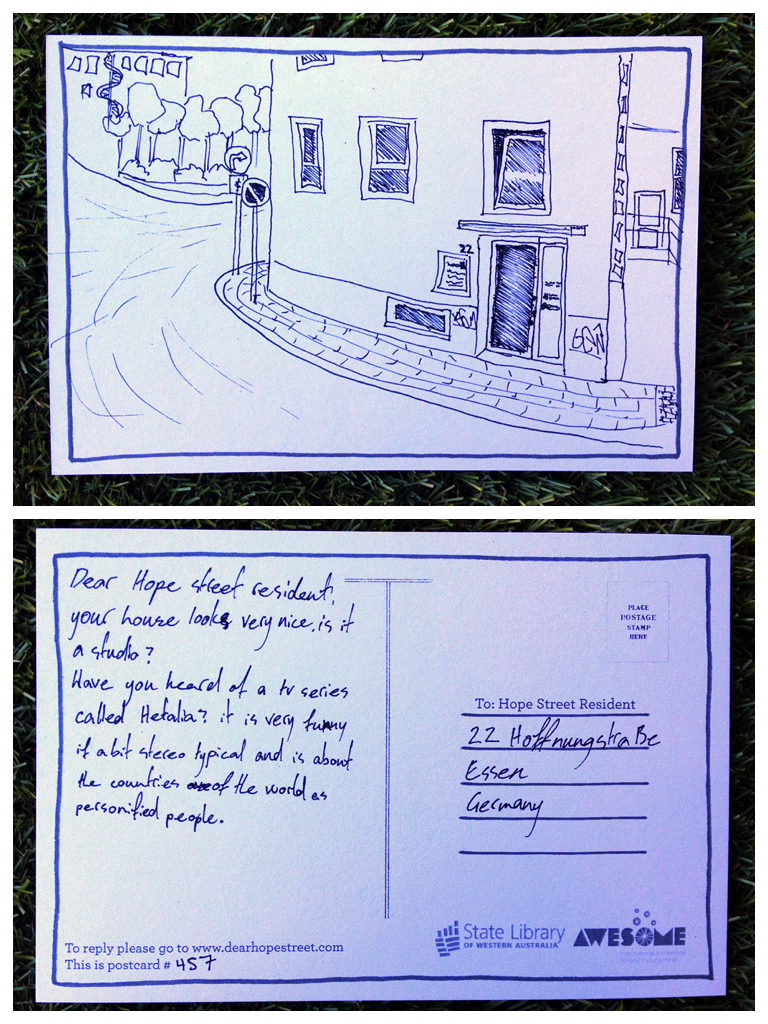 22
Dear Hope street resident,
your house looks very nice. is it
a studio?
Have you heard of a tv series
called Hetalia? it is very funny
if a bit stereo typical and is about
the countries of the world as
personified people.
PLACE
POSTAGE
STAMP
HERE
To: Hope Street Resident
22 Hoffnungstraße
Essen
Germany
To reply please go to www.dearhopestreet.com
This is postcard # 457
State Library
OF WESTERN AUSTRALIA
AWESOME